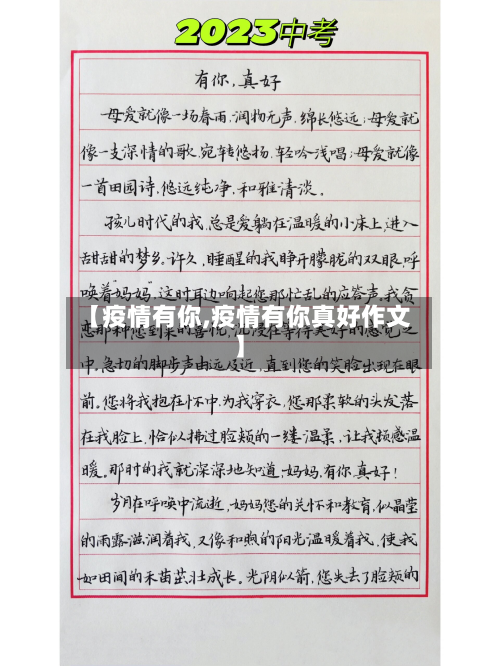 2023中考
有你,真好
母爱就像一场春雨,润物无声,绵长悠远;母爱就
像一支深情的歌,宛转悠扬,轻吟浅唱;母爱就像
一首田园诗,悠远纯净,和雅清谈。
孩儿时代的我,总是爱躺在温暖的小床上,进入
甜甜的梦乡。许久,睡醒的我睁开朦胧的双眼,呼
唤着"妈妈",这时耳边响起您那忙乱的应答声,我贪
【疫情有你,疫情有你真好作文
】
中。急切的脚步声由远及近,直到您的笑脸出现在眼
前。您将我抱在怀中,为我穿衣,您那柔软的头发落
在我脸上,恰似拂过脸颊的一缕温柔,让我顿感温
暖。那时的我就深深地知道,妈妈,有你,真好!
岁月在呼唤中流逝,妈妈您的关怀和教育,似晶莹
的雨露滋润着我,又像和煦的阳光温暖着我,使我
如田间的禾苗茁壮成长。光阴似箭,您失去了脸颊的